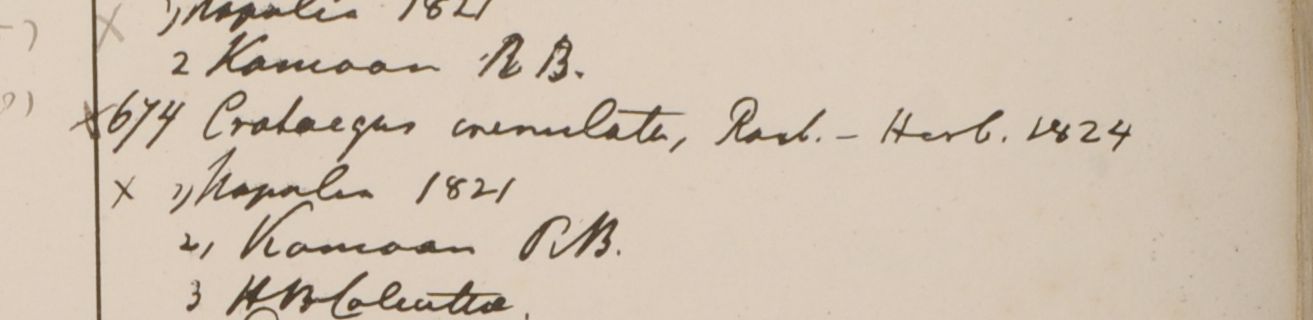 x 1, Napalia 1821
2 Kamoan R B.
x 674 Crataegus crenulata, Roxb. – Herb. 1824
x 1, Napalia 1821
2, Kamoan R B.
3 H B Calcutta.